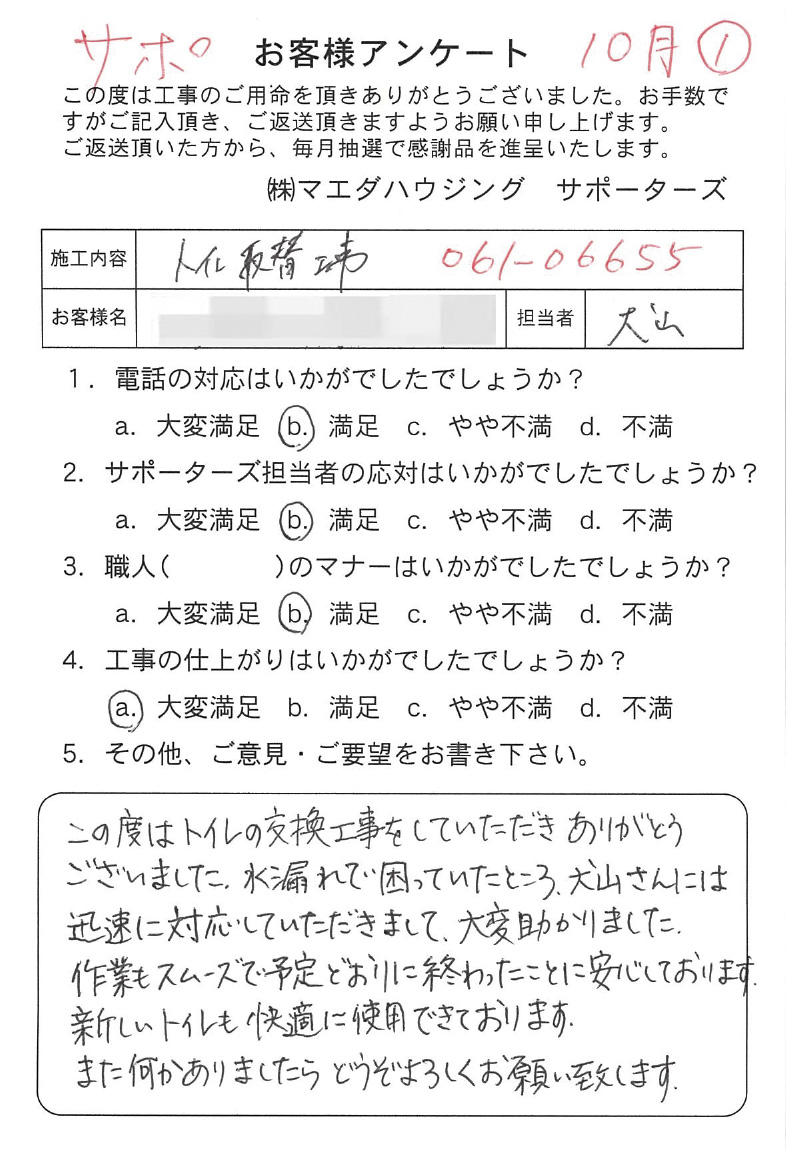 サポ お客様アンケート 10月 ①
この度は工事のご用命を頂きありがとうございました。お手数で
すがご記入頂き、ご返送頂きますようお願い申し上げます。
ご返送頂いた方から、毎月抽選で感謝品を進呈いたします。
㈱マエダハウジング サポーターズ
施工内容 トイレ取替工事 061-06655
お客様名 担当者 犬山
1. 電話の対応はいかがでしたでしょうか?
a. 大変満足 b. 満足 c. やや不満 d. 不満
2. サポーターズ担当者の応対はいかがでしたでしょうか?
a. 大変満足 b. 満足 c. やや不満 d. 不満
3. 職人( )のマナーはいかがでしたでしょうか?
a. 大変満足 b. 満足 c. やや不満 d. 不満
4. 工事の仕上がりはいかがでしたでしょうか?
a. 大変満足 b. 満足 c. やや不満 d. 不満
5. その他、ご意見・ご要望をお書き下さい。
この度はトイレの交換工事をしていただき ありがとう
ございました. 水漏れで困っていたところ、犬山さんには
迅速に対応していただきまして、大変助かりました.
作業もスムーズで予定どおりに終わったことに安心しております.
新しいトイレも快適に使用できております.
また何かありましたら どうぞよろしくお願い致します.